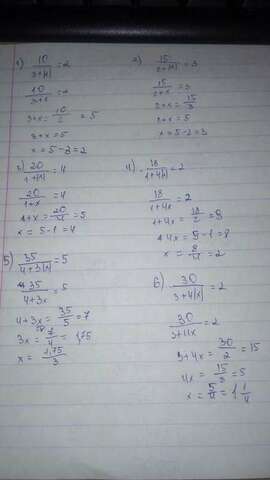 1) 10/3+|x| = 2
10/3+x = 2
3+x = 10/2 = 5
3+x = 5
x = 5-3 = 2
2) 15/2+|x| = 3
15/2+x = 3
2+x = 15/3
2+x = 5
x = 5-2 = 3
3) 20/1+|x| = 4
20/1+x = 4
1+x = 20/4 = 5
x = 5-1 = 4
4) 18/1+4|x| = 2
18/1+4x = 2
1+4x = 18/2 = 8
4x = 5-1 = 8
x = 8/4 = 2
5) 35/4+3|x| = 5
35/4+3x = 5
4+3x = 35/5 = 7
3x = 7/4 = 1,75
x = 1,75/3
6) 30/3+4|x| = 2
30/3+4x = 2
3+4x = 30/2 = 15
4x = 15/3 = 5
x = 5/4 = 1 1/4